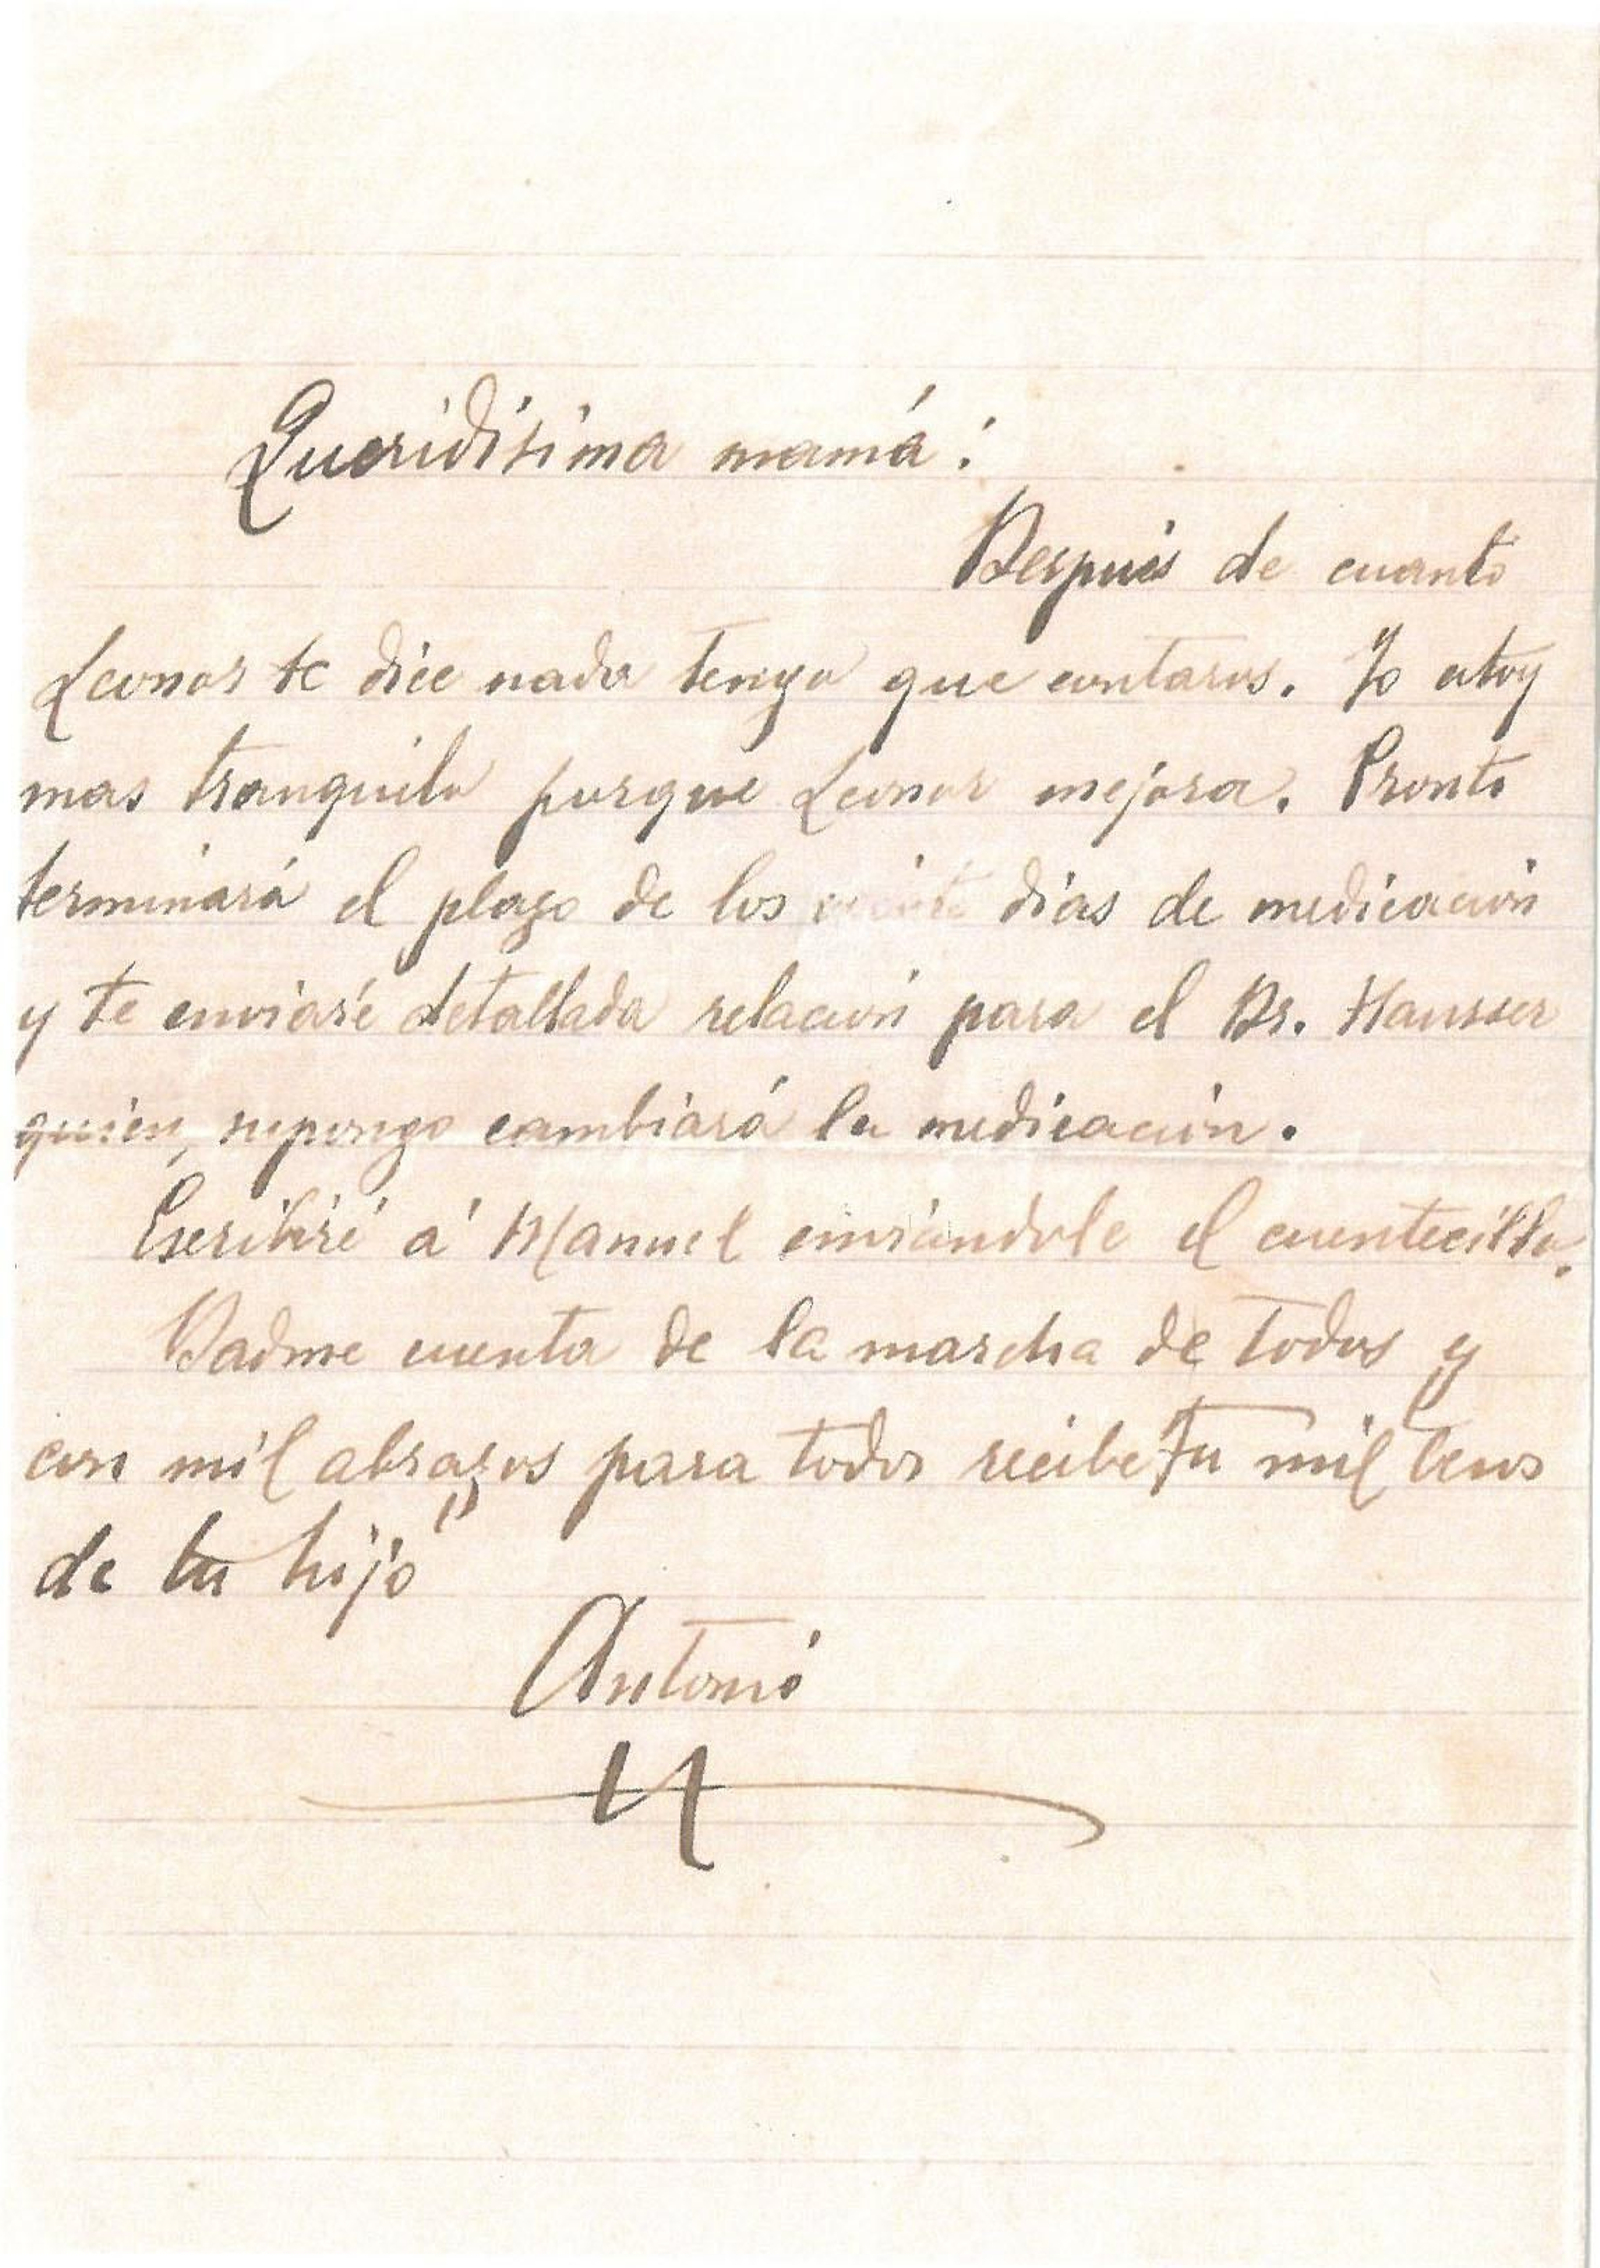 Queridísima mamá:
Después de cuanto
Leonor te dice nada tengo que contaros. Yo estoy
mas tranquilo porque Leonor mejora. Pronto
terminará el plazo de los veinte dias de medicación
y te enviaré detallada relación para el Dr. Hausser
quien, supongo cambiará la medicación.
Escribiré á Manuel enviándole el cuentecillo.
Dadme cuenta de la marcha de todos y
con mil abrazos para todos recibe tu mil besos
de tu hijo
Antonio